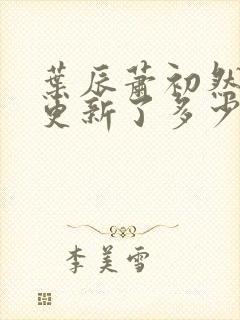 葉辰蕭初然
更新了多少
李美雪